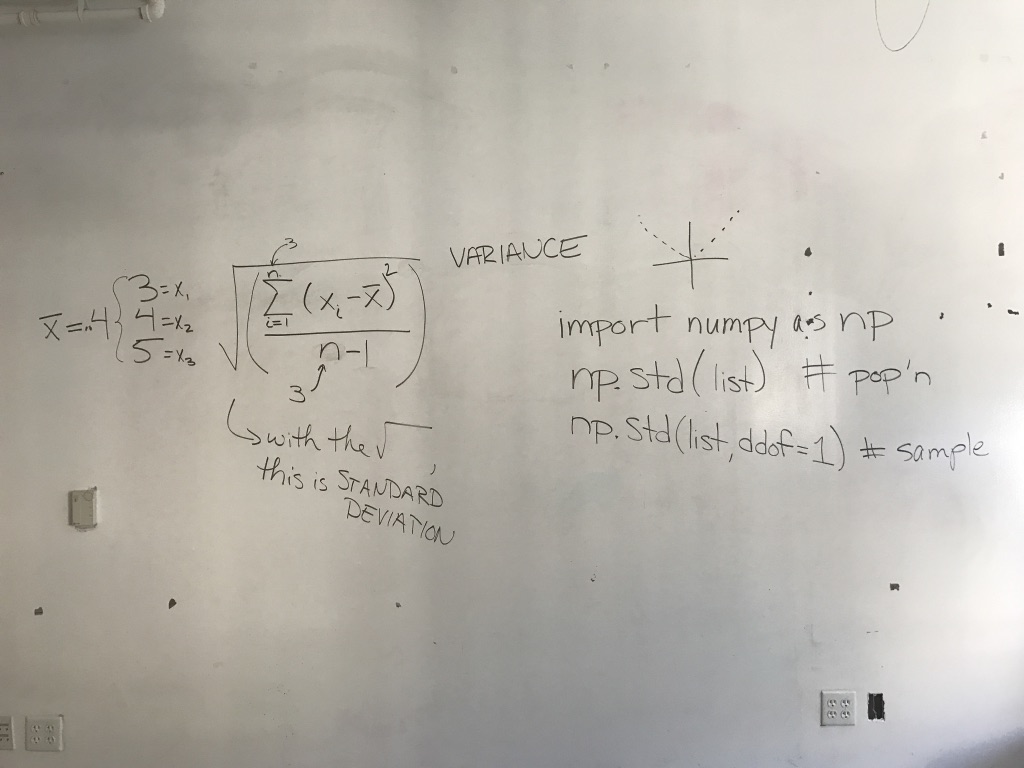 x̄ = 4
3 = x₁
4 = x₂
5 = x₃
3
n
√(Σ (xᵢ - x̄)²
i=1
n-1
3
with the √ ,
this is STANDARD
DEVIATION
VARIANCE
import numpy as np
np.std(list) # pop'n
np.std(list, ddof=1) # sample